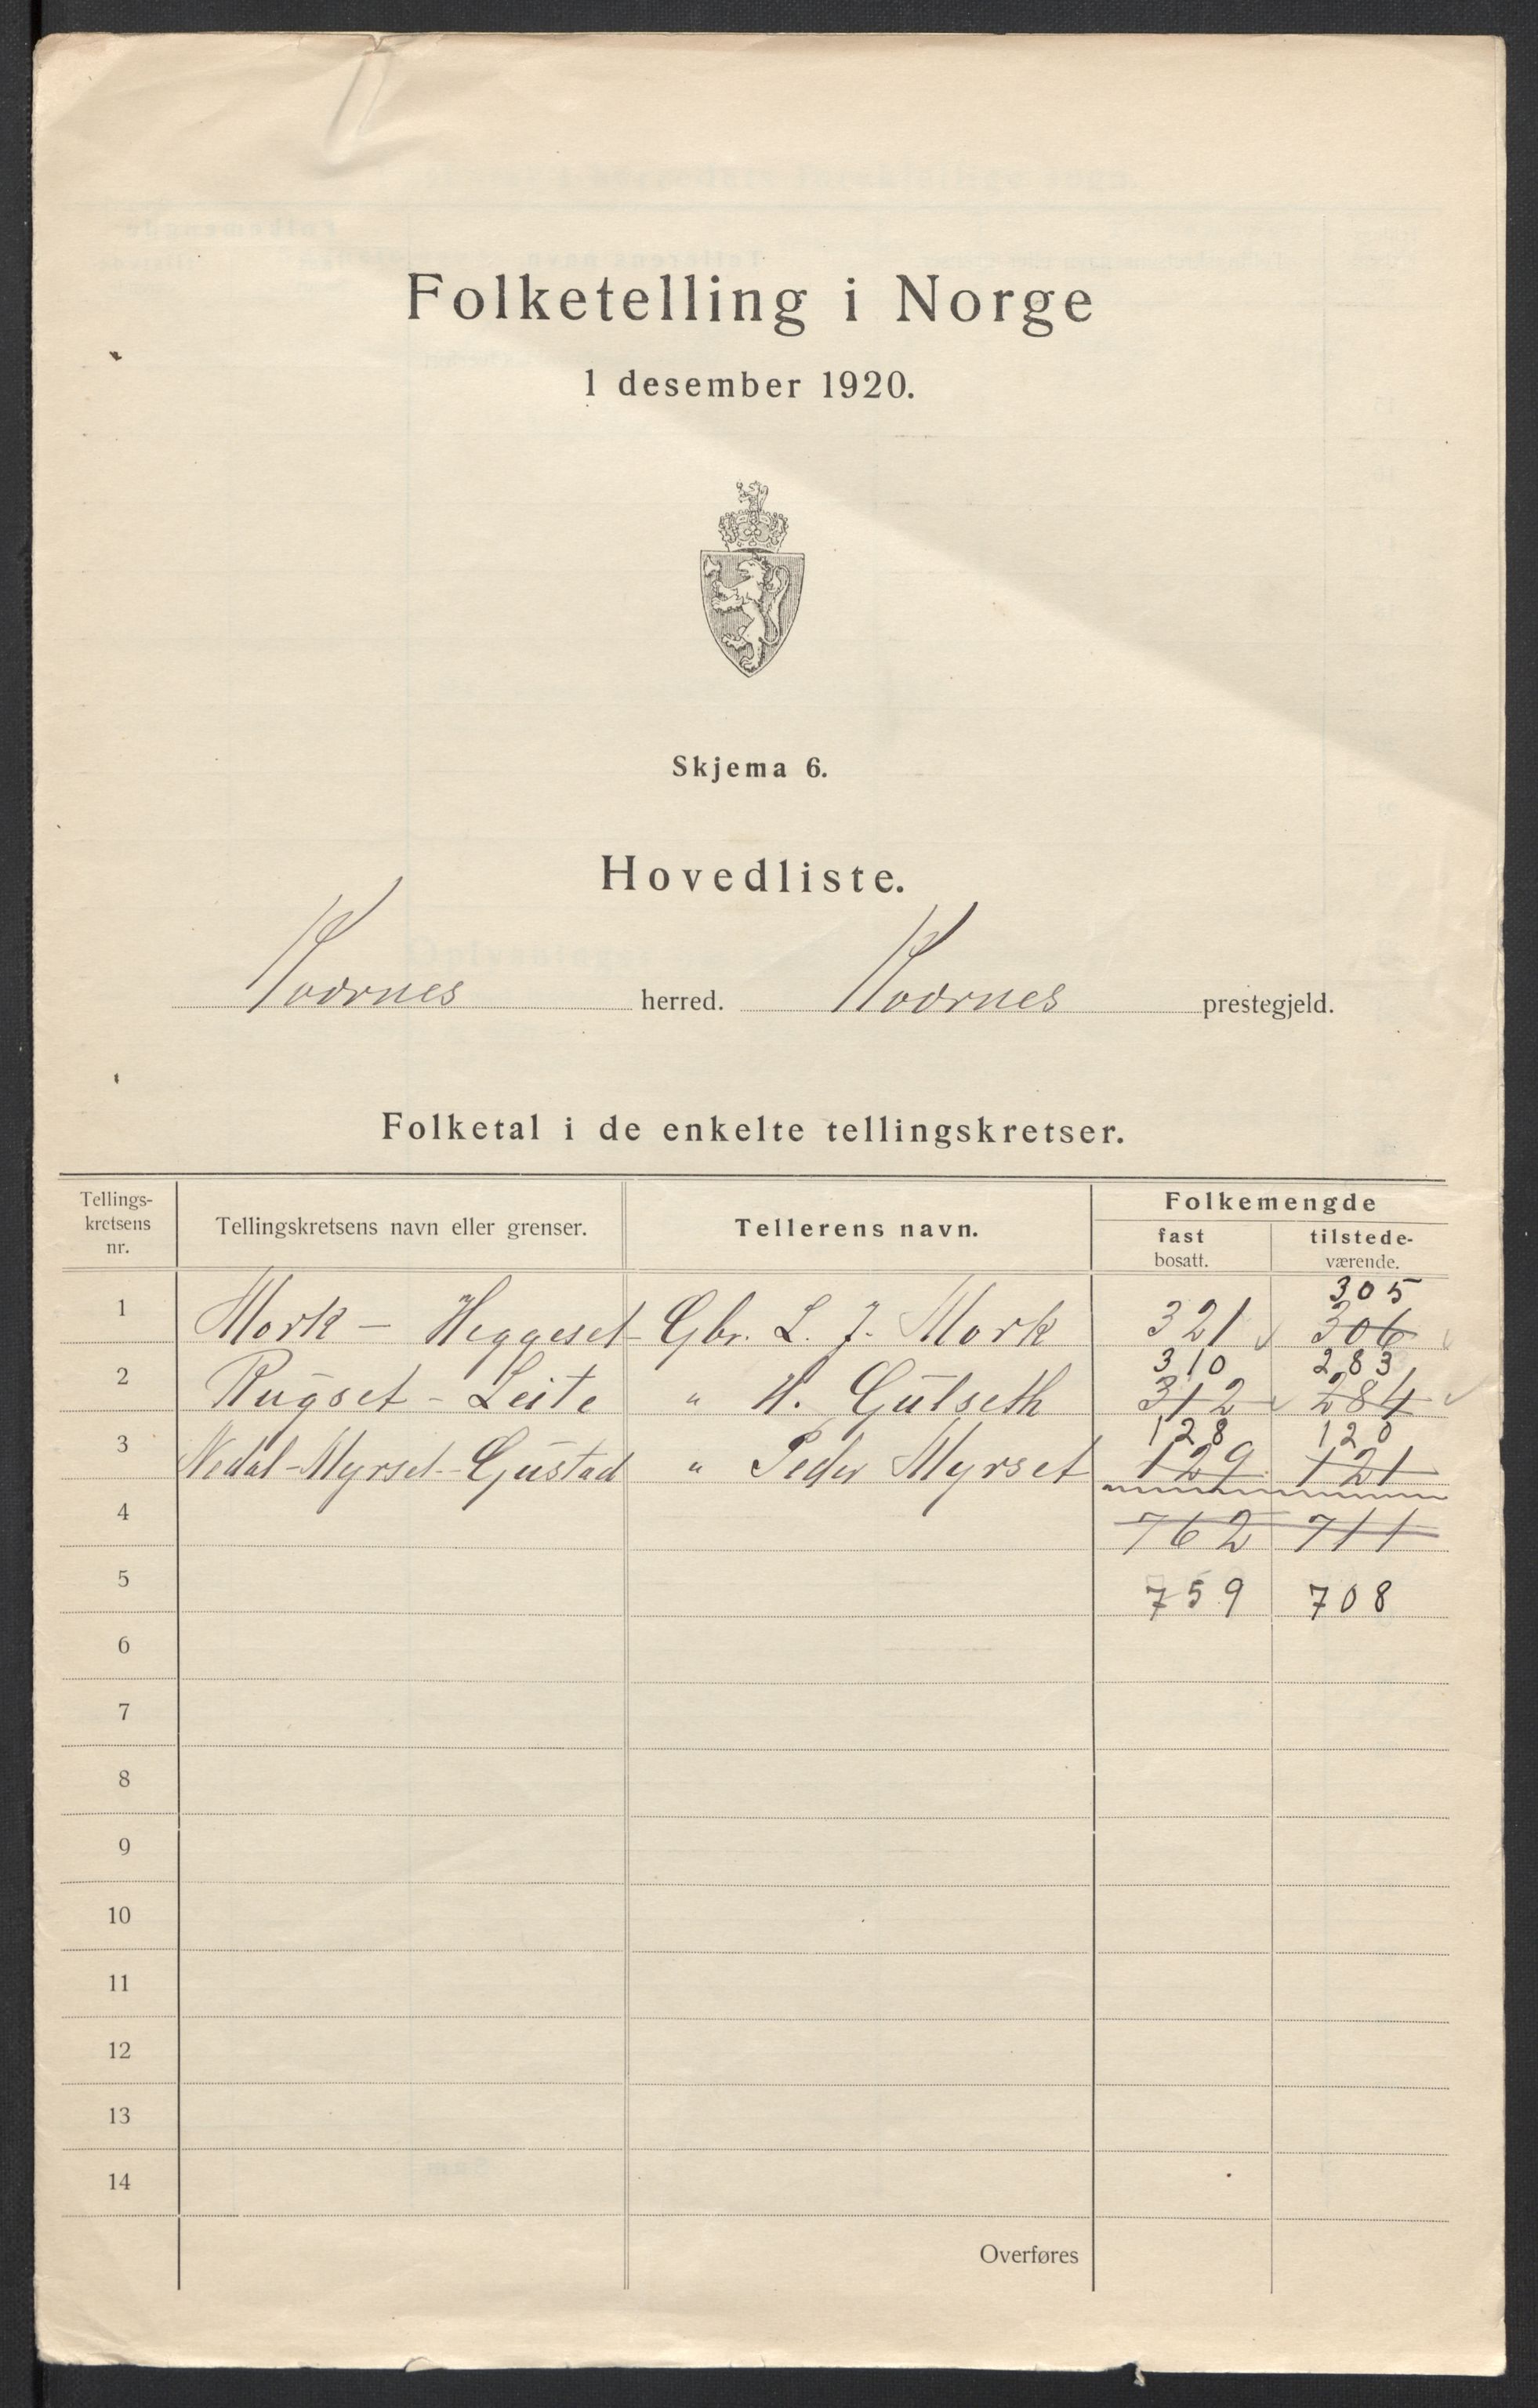 Folketelling i Norge
1 desember 1920.
Skjema 6.
Hovedliste.
Kvernes herred. Kvernes prestegjeld.
Folketal i de enkelte tellingskretser.
Tellings-kretsens nr. Tellingskretsens navn eller grenser. Tellerens navn. Folkemengde
fast bosatt. tilstede-værende.
305
1 Mork - Heggeset Gbr. L. J. Mork 321 306
310 283
2 Rugset - Leite " H. Gulseth 312 284
128 120
3 Nedal-Myrset-Gustad " Peder Myrset 129 121
4 762 711
5 759 708
6
7
8
9
10
11
12
13
14
Overføres